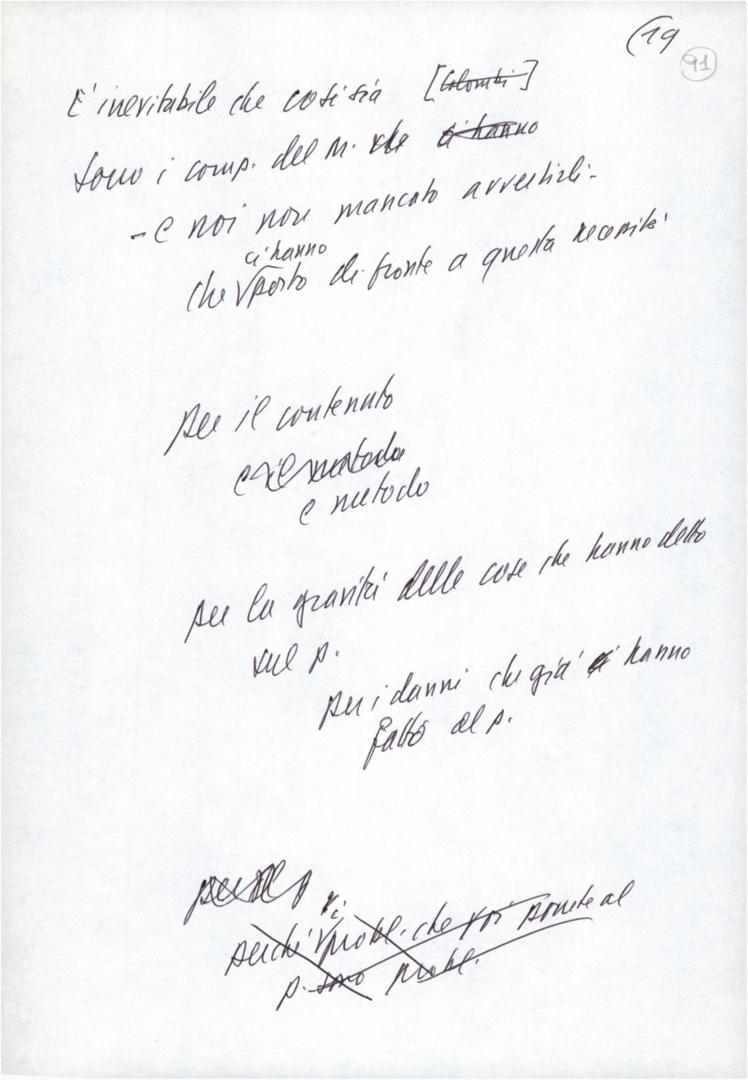 (19
91
E' inevitabile che così sia [Colombi]
Sono i comp. del M. che ci hanno
- e noi non mancato avvertirli -
ci hanno
che posto di fronte a questa necessità
per il contenuto
e il metodo
e metodo
per la gravità delle cose che hanno detto
sul p.
per i danni che già hanno
fatto al p.
perché i probl. che voi ponete al
p. sono probl.